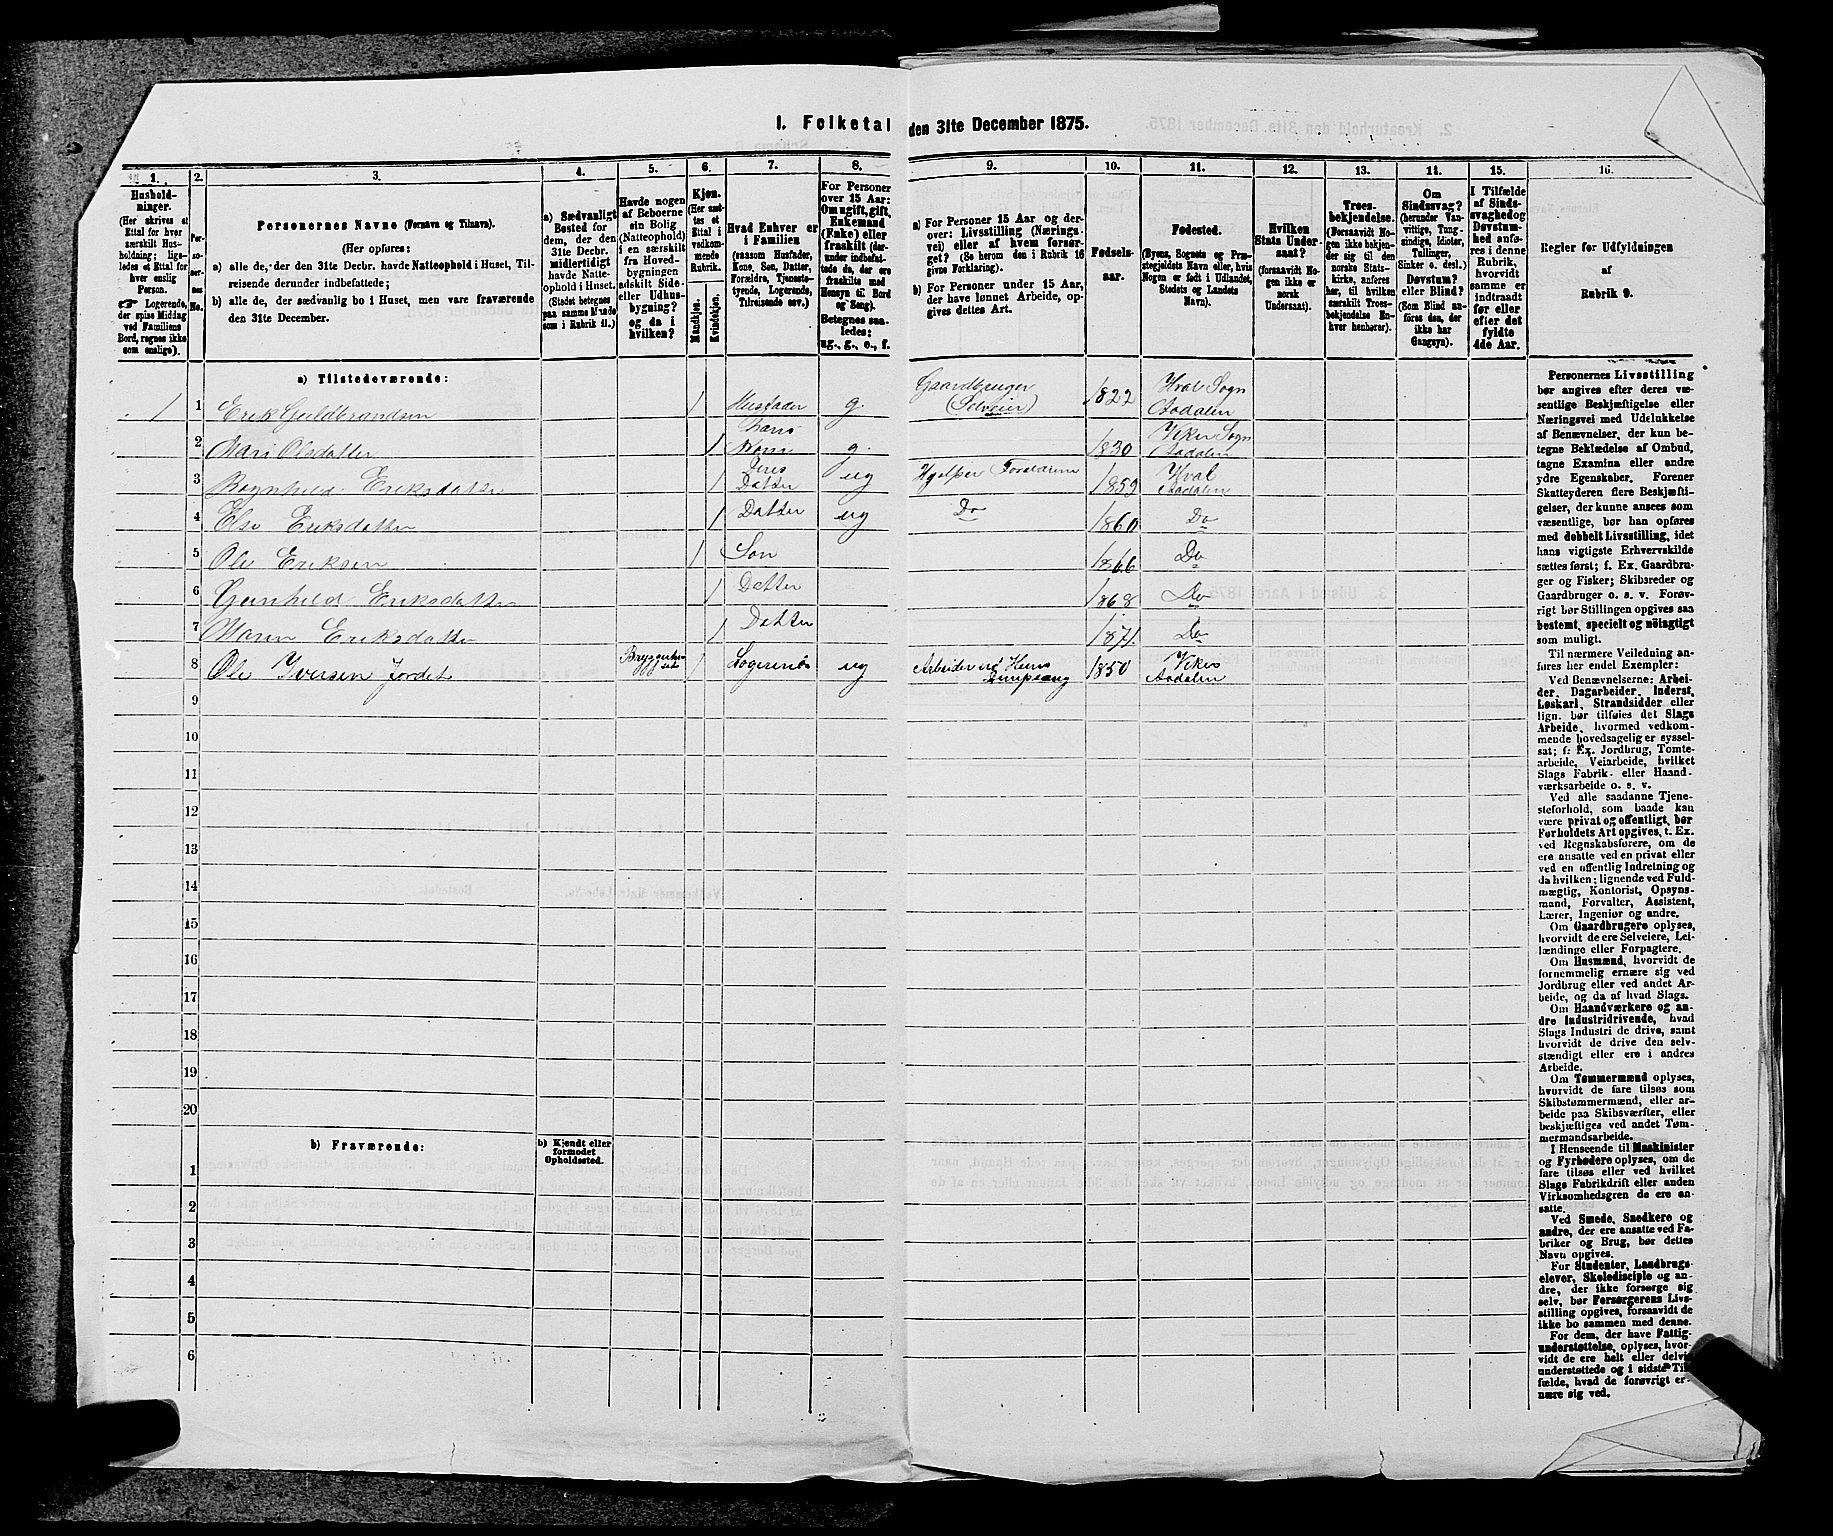 1. Folketal den 31te December 1875.
1.
Hushold-
ninger.
(Her skrives et
Ettal for hver
særskilt Hus-
holdning; lige-
ledes et Ettal for
hver enslig
Person.
Logerende,
der spise Middag
ved Familiens
Bord, regnes ikke
som enslige).
2.
Per-
soner-
nes
No.
3.
Personernes Navne (Fornavn og Tilnavn).
(Her opføres:
a) alle de, der den 31te Decbr. havde Natteophold i Huset, Til-
reisende derunder indbefattede;
b) alle de, der sædvanlig bo i Huset, men vare fraværende
den 31te December.
4.
a) Sædvanligt
Bosted for
dem, der den
31te Decbr.
midlertidigt
havde Natte-
ophold i Huset.
(Stedet betegnes
paa samme Maade
som i Rubrik 11.)
5.
Havde nogen
af Beboerne
sin Bolig
(Natteophold)
i en særskilt
fra Hoved-
bygningen
adskilt Side-
eller Udhus-
bygning?
og da i
hvilken?
6.
Kjøn.
(Her sæt-
tes et
Ettal i
vedkom-
mende
Rubrik.
Mandkjøn.
Kvindekjøn.
7.
Hvad Enhver er
i Familien
(saasom Husfader,
Kone, Søn, Datter,
Forældre, Tjeneste-
tyende, Logerende,
Tilreisende osv.)
8.
For Personer
over 15 Aar:
Om ugift, gift,
Enkemand
(Enke) eller
fraskilt (der-
under indbefat-
tede de, der ere
fraskilte med
Hensyn til Bord
og Seng).
Betegnes saa-
ledes:
ug., g., e., f.
9.
a) For Personer 15 Aar og der-
over: Livsstilling (Nærings-
vei) eller af hvem forsør-
get? (Se herom den i Rubrik 16
givne Forklaring).
b) For Personer under 15 Aar,
der have lønnet Arbeide, op-
gives dettes Art.
10.
Fødsels-
aar.
11.
Fødested.
(Byens, Sognets og Præ-
stegjeldets Navn eller, hvis
Nogen er født i Udlandet,
Stedets og Landets
Navn).
12.
Hvilken
Stats Under-
saat?
(forsaavidt No-
gen ikke er
norsk
Undersaat).
13.
Troes-
bekjendelse.
(Forsaavidt No-
gen ikke bekjen-
der sig til den
norske Stats-
kirke, anføres
her, til hvilken
særskilt Troes-
bekjendelse En-
hver henhører).
14.
Om
Sindssvag?
(herunder Van-
vittige, Tung-
sindige, Idioter,
Tullinger,
Sinker o. desl.)
Døvstum?
eller Blind?
(Som Blind an-
føres den, der
ikke har
Gangsyn).
15.
I Tilfælde
af Sinds-
svaghed og
Døvstum-
hed anfø-
res i denne
Rubrik,
hvorvidt
samme er
indtraadt
før eller
efter det
fyldte
4de Aar.
16.
Regler for Udfyldningen
af
Rubrik 9.
a) Tilstedeværende:
1 1 Erik Guldbrandsen 1 Husfader g. Gaardbruger (Selveier) 1822 Hval Sogn Aadalen
2 Mari Olsdatter 1 hans Kone g 1830 Viker Sogn Aadalen
3 Ragnhild Eriksdatter 1 Deres Datter ug Hjelper Foreldrene 1853 Hval Aadalen
4 Else Eriksdatter 1 Datter ug Do 1860 Do
5 Ole Eriksen 1 Søn 1866 Do
6 Gunhild Eriksdatter 1 Datter 1868 Do
7 Maren Eriksdatter 1 Datter 1871 Do
8 Ole Iversen Jordet 1 Logerende ug Arbeider 1850 Viker Aadalen
9
10
11
12
13
14
15
16
17
18
19
20
b) Fraværende:
b) Kjendt eller
formodet
Opholdssted.
1
2
3
4
5
6
Personernes Livsstilling
bør angives efter deres væ-
sentlige Beskjæftigelse eller
Næringsvei med Udelukkelse
af Benævnelser, der kun be-
tegne Beklædelse af Ombud,
tagne Examina eller andre
ydre Egenskaber. Forener
Skatteyderen flere Beskjæfti-
gelser, der kunne ansees som
væsentlige, bør han opføres
med dobbelt Livsstilling, idet
hans vigtigste Erhvervskilde
sættes først; f. Ex. Gaardbru-
ger og Fisker; Skibsreder og
Gaardbruger o. s. v. Forøv-
rigt bør Stillingen opgives saa
bestemt, specielt og nöiagtigt
som muligt.
Til nærmere Veiledning an-
føres her endel Exempler:
Ved Benævnelserne: Arbei-
der, Dagarbeider, Inderst,
Løskarl, Strandsidder eller
lign. bør tilføies det Slags
Arbeide, hvormed vedkom-
mende hovedsagelig er syssel-
sat; f. Ex. Jordbrug, Tomte-
arbeide, Veiarbeide, hvilket
Slags Fabrik- eller Haand-
værksarbeide o. s. v.
Ved alle saadanne Tjene-
steforhold, som baade kan
være privat og offentligt, bør
Forholdets Art opgives, t. Ex.
ved Regnskabsførere, om de
ere ansatte ved en privat eller
ved en offentlig Indretning og
da hvilken; lignende ved Fuld-
mægtig, Kontorist, Opsyns-
mand, Forvalter, Assistent,
Lærer, Ingeniør og andre.
Om Gaardbrugere oplyses,
hvorvidt de ere Selveiere, Lei-
lændinge eller Forpagtere.
Om Husmænd, hvorvidt de
fornemmelig ernære sig ved
Jordbrug eller ved andet Ar-
beide, og da af hvad Slags.
Om Haandværkere og an-
dre Industridrivende, hvad
Slags Industri de drive, samt
hvorvidt de drive den selv-
stændigt eller ere i andres
Arbeide.
Om Tømmermænd oplyses,
hvorvidt de fare tilsøs som
Skibstømmermænd, eller ar-
beide paa Skibsværfter, eller
beskjæftiges ved andet Tøm-
mermandsarbeide.
I Henseende til Maskinister
og Fyrbødere oplyses, om de
fare tilsøs eller ved hvilket
Slags Fabrikdrift eller anden
Virksomhedsgren de ere an-
satte.
Ved Smede, Snedkere og
andre, der ere ansatte ved Fa-
briker og Brug, bør dettes
Navn opgives.
For Studenter, Landbrugs-
elever, Skoledisciple og an-
dre, der ikke forsørge sig
selv, bør Forsørgerens Livs-
stilling opgives, forsaavidt de
ikke bo sammen med denne.
For dem, der have Fattig-
understøttelse, oplyses, hvor-
vidt de ere helt eller delvis
understøttede og i sidste Til-
fælde, hvad de forøvrigt er-
nære sig ved.